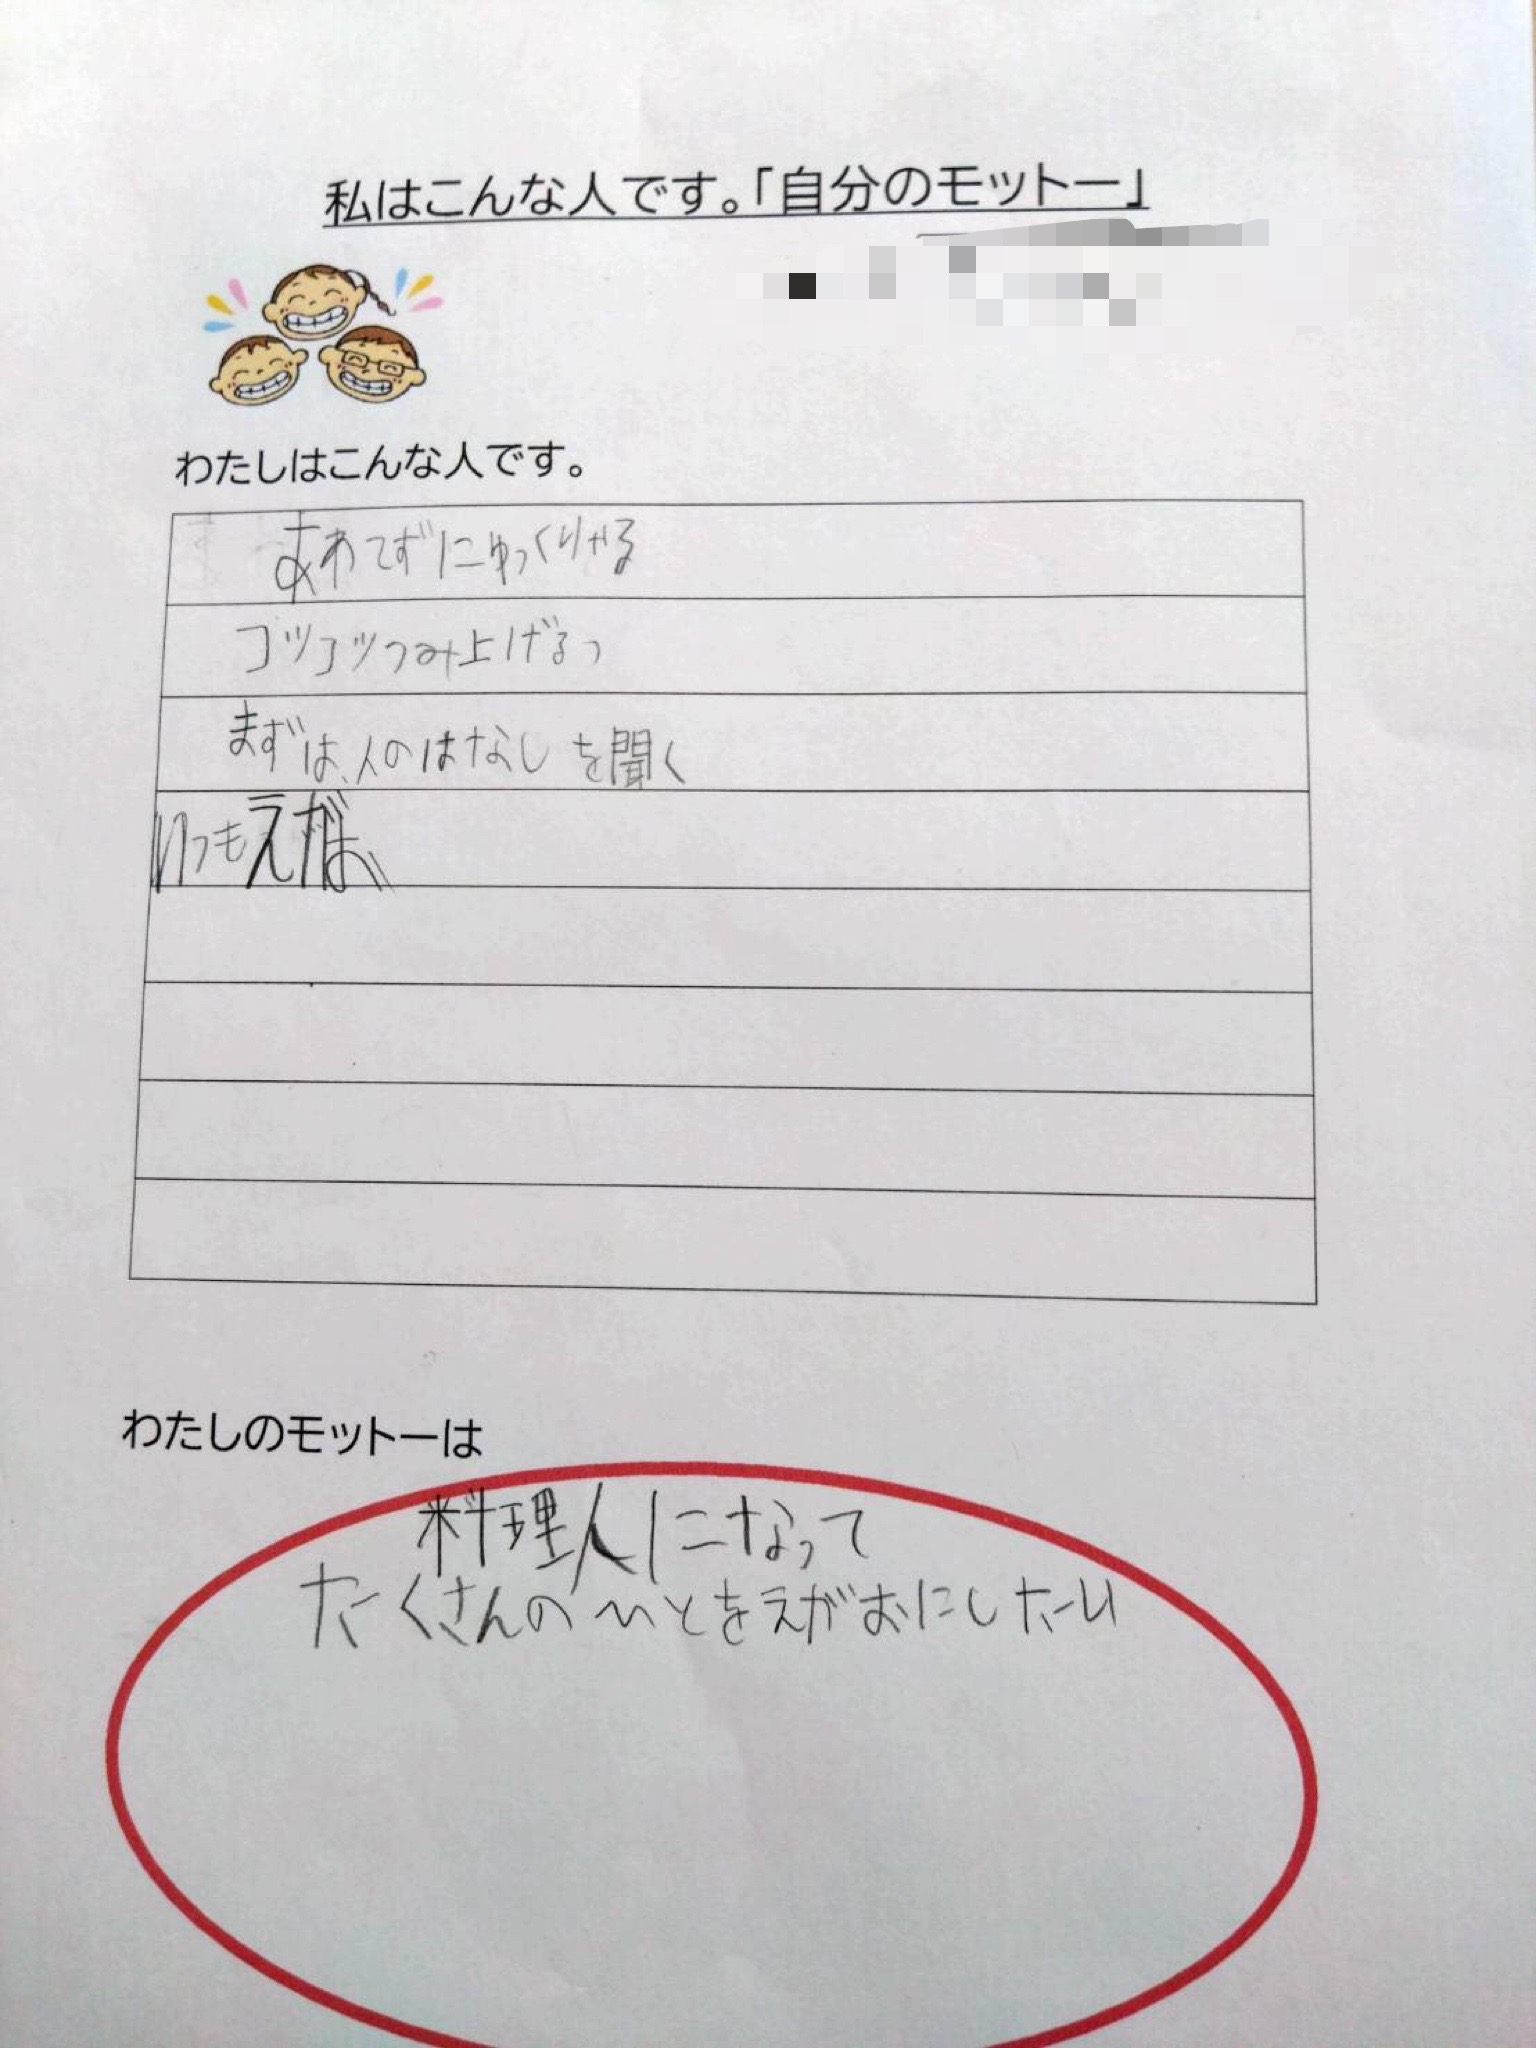 私はこんな人です。「自分のモットー」
わたしはこんな人です。
あわてずにゆっくりやる
コツコツつみ上げるっ
まずは、人のはなしを聞く
いつもえがお
わたしのモットーは
料理人になって
たくさんのひとをえがおにしたい